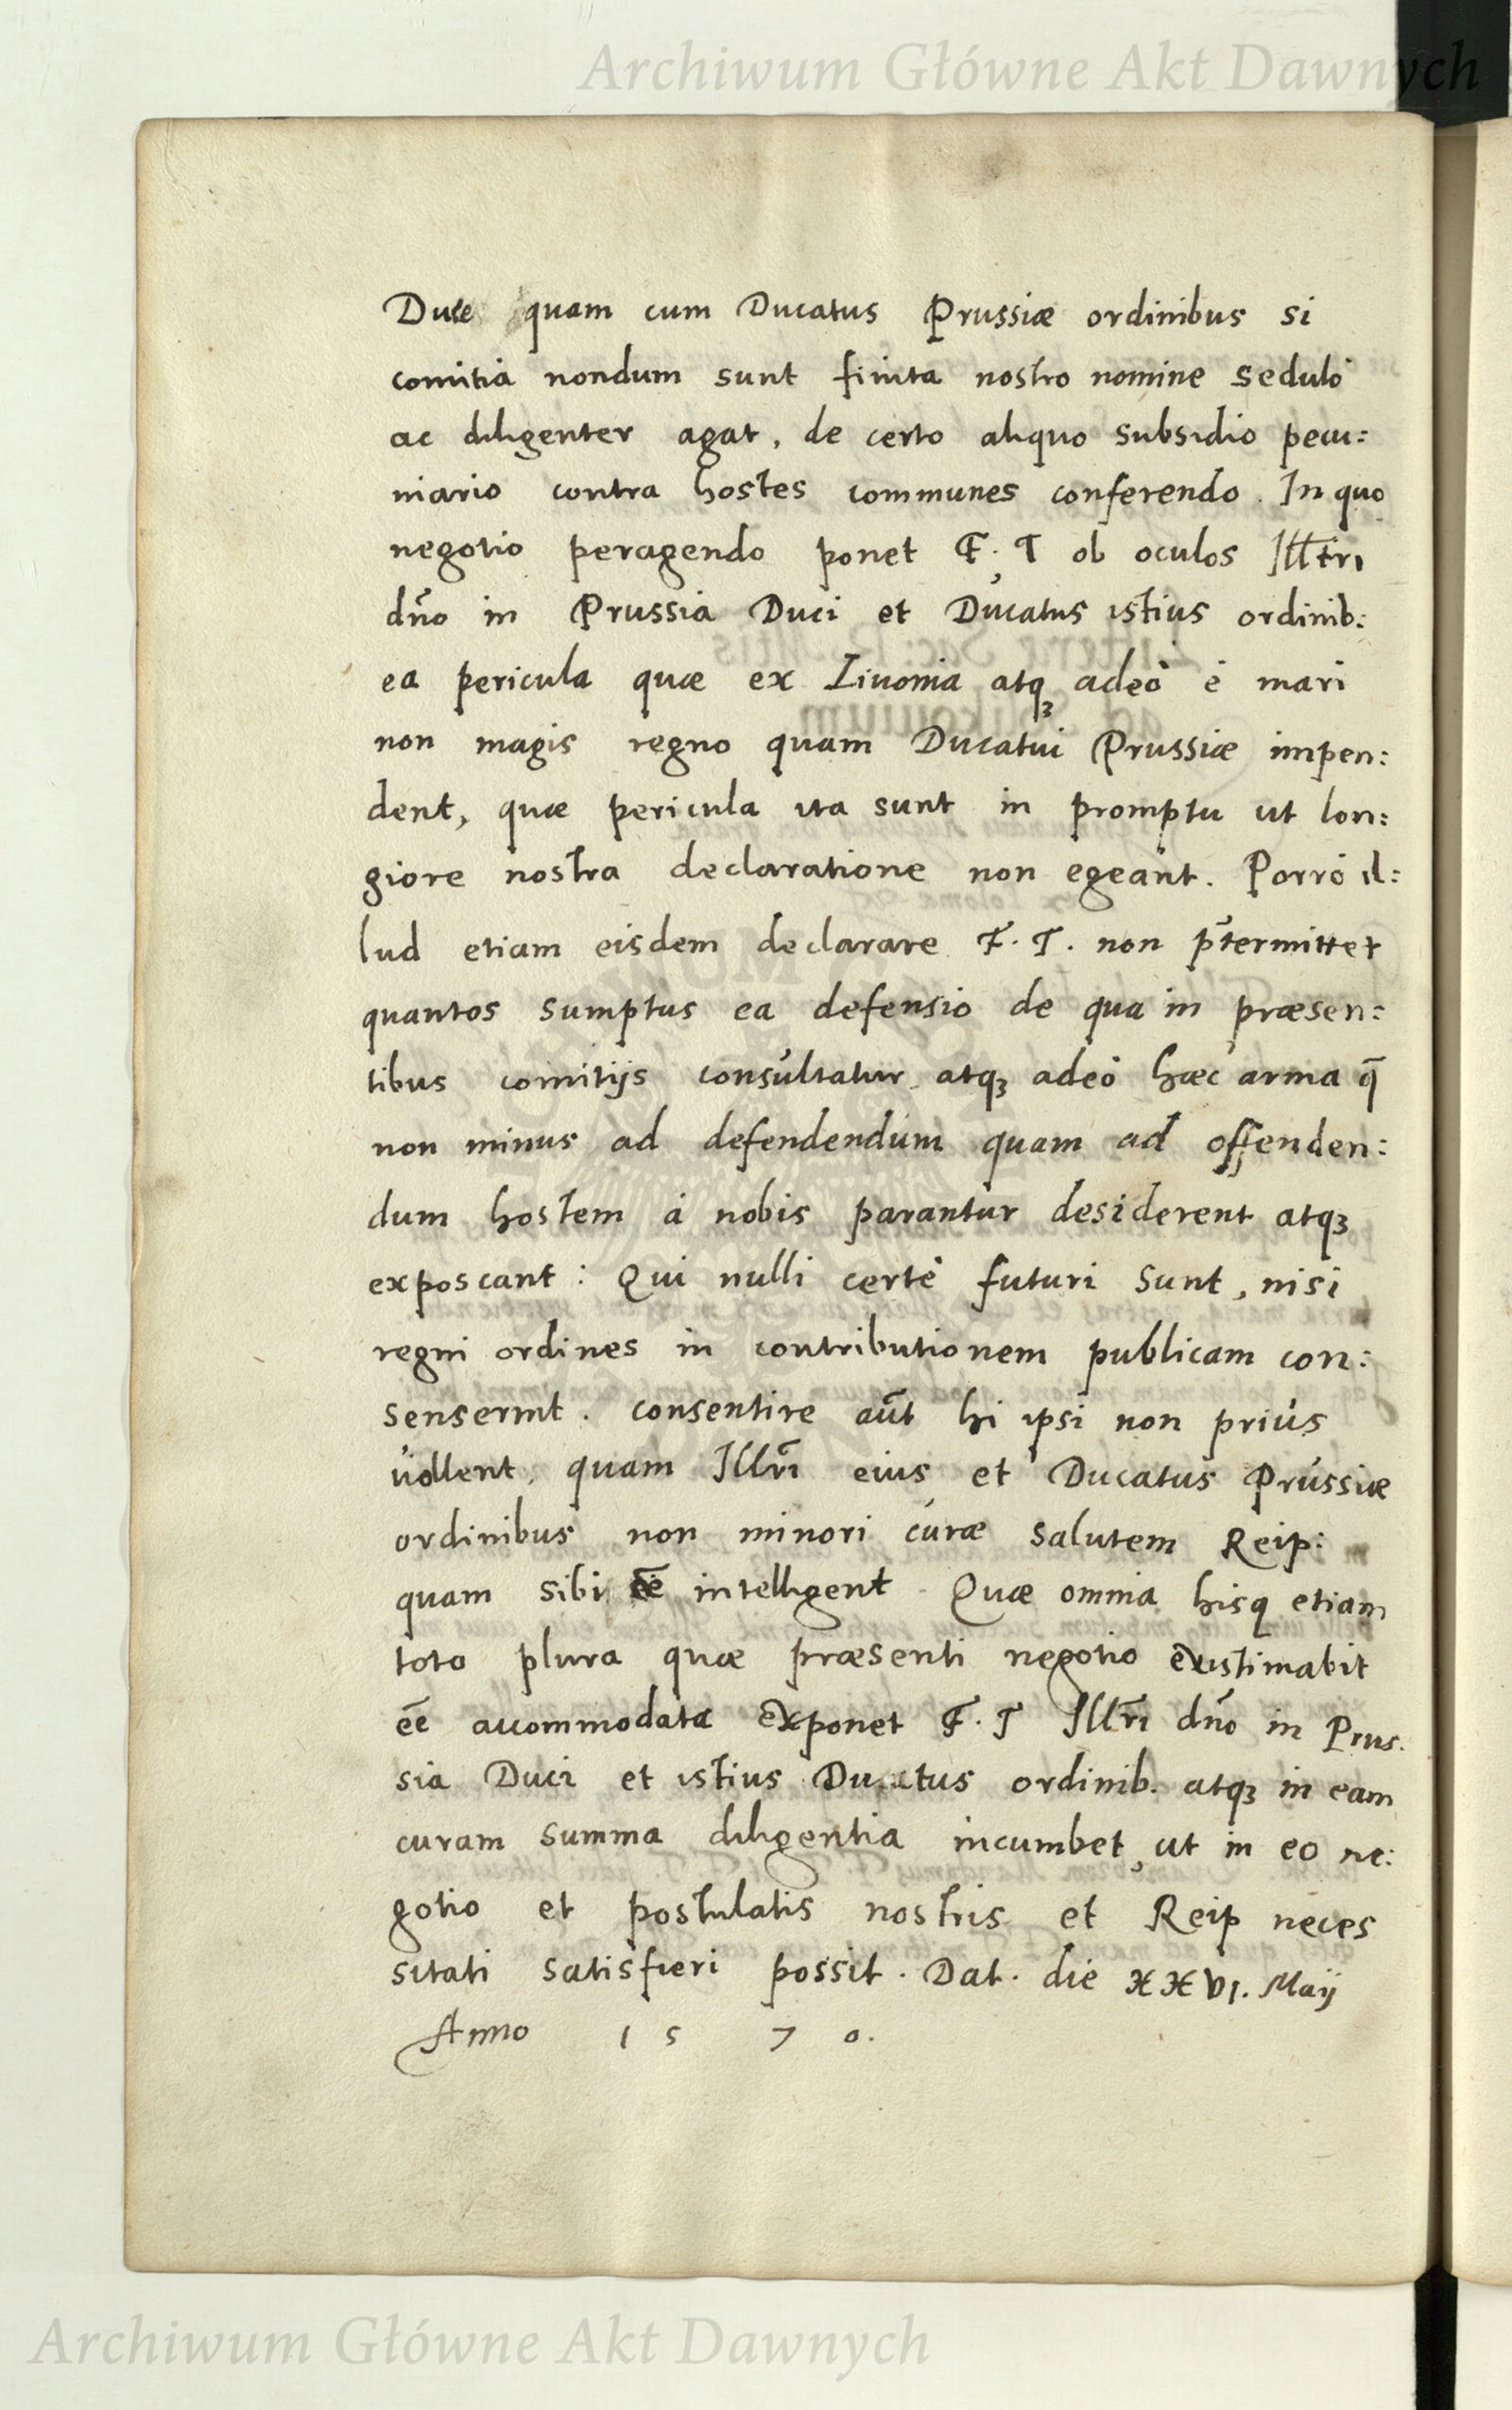 Archiwum Główne Akt Dawnych
Duce quam cum Ducatus Prussiæ ordinibus si
comitia nondum sunt finita nostro nomine sedulò
ac diligenter agat, de certo aliquo subsidio pecu:
niario contra hostes communes conferendo. In quo
negotio peragendo ponet F. T ob oculos Illtri
dño in Prussia Duci et Ducatus istius ordinib:
ea pericula quæ ex Liuonia atq3 adeò è mari
non magis regno quam Ducatui Prussiæ impen:
dent, quæ pericula ita sunt in promptu ut lon:
giore nostra declaratione non egeant. Porrò il:
lud etiam eisdem declarare F. T. non p̃termittet
quantos sumptus ea defensio de qua in præsen:
tibus comitijs consultatur atq3 adeò hæc arma q̃
non minus ad defendendum quam ad offenden:
dum hostem à nobis parantur desiderent atq3
exposcant: Qui nulli certè futuri sunt, nisi
regni ordines in contributionem publicam con:
senserint. consentire aũt hi ipsi non prius
uollent, quam Illrĩ eius et Ducatus Prussiæ
ordinibus non minori curæ salutem Reip:
quam sibi eẽ intelligent. Quæ omnia hisq etiam
toto plura quæ præsenti negotio existimabit
eẽ accommodata exponet F. T Illrĩ dño in Prus.
sia Duci et istius Ducatus ordinib. atq3 in eam
curam summa diligentia incumbet, ut in eo ne:
gotio et postulatis nostris et Reip neces
sitati satisfieri possit. Dat. die XXVI. Maij
Anno 1570.
Archiwum Główne Akt Dawnych